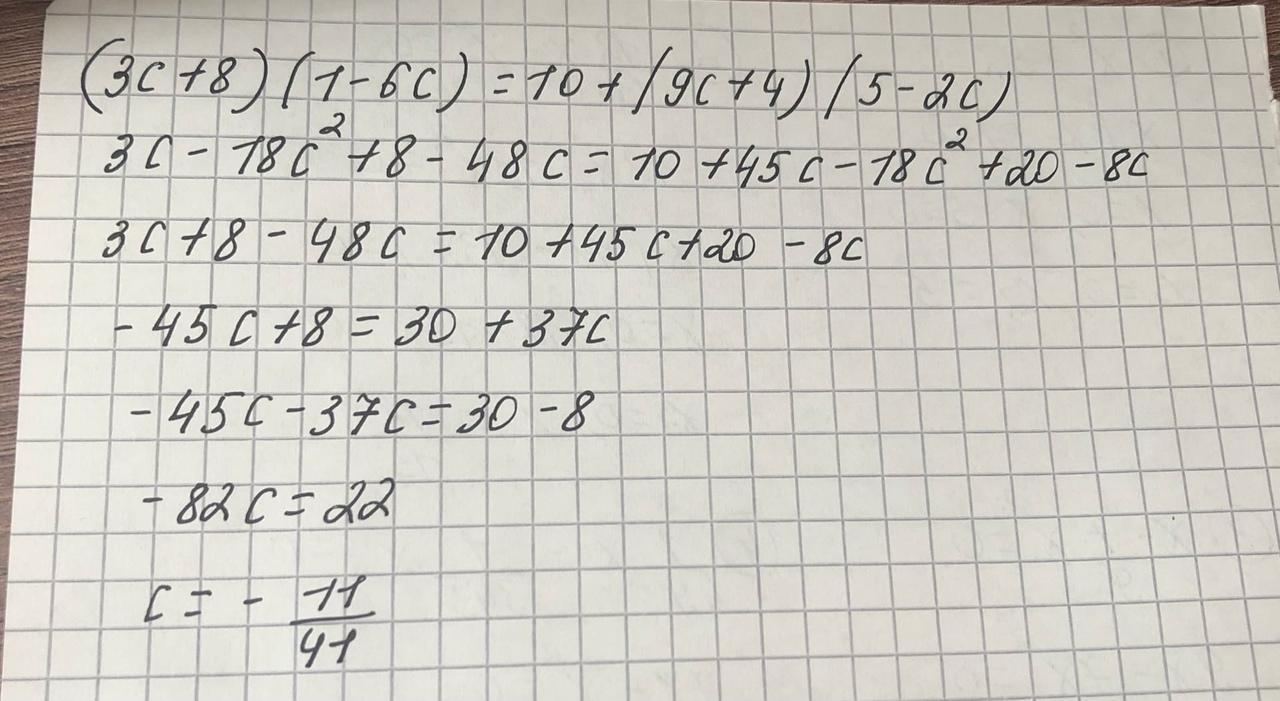 (3c+8)(1-6c)=10+(9c+4)(5-2c)
3c-18c²+8-48c=10+45c-18c²+20-8c
3c+8-48c=10+45c+20-8c
-45c+8=30+37c
-45c-37c=30-8
-82c=22
c=-11/41